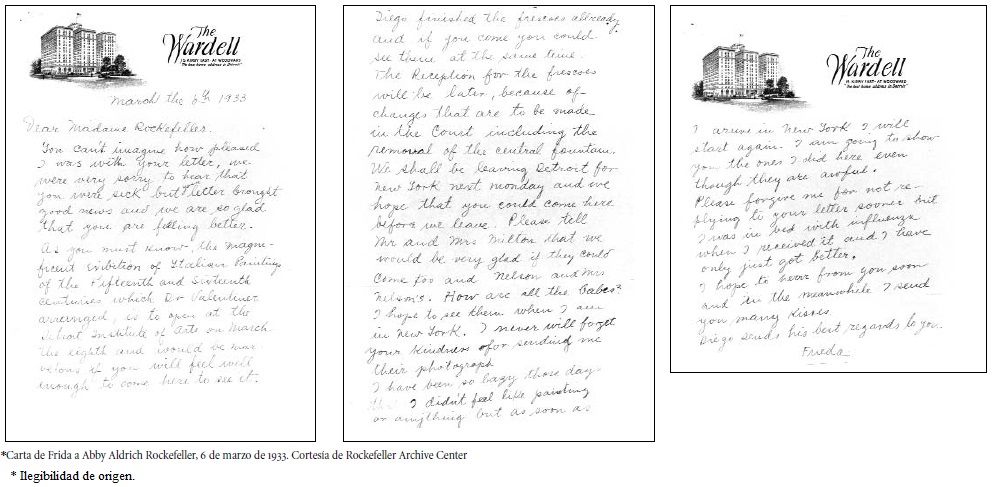 The
Wardell
15 KIRBY EAST, AT WOODWARD
"The best home address in Detroit"
March the 6th 1933
Dear Madame Rockefeller.
You can't imagine how pleased
I was with your letter, we
were very sorry to hear that
you were sick but letter brought
good news and we are so glad
that you are feling better.
As you must know the magni-
ficent exibition of Italian Paintings
of the Fifteenth and Sixteenth
centuries which Dr Valentiner
arrainged, is to open at the
Institute of Arts on March
the eighth and would be mar-
velous if you will feel well
enough to come here to see it.
Diego finished the frescoes allready
and if you come you could
see them at the same time.
The Reception for the frescoes
will be later, because of
changes that are to be made
in the Court including the
removal of the central fountain.
We shall be leaving Detroit for
New York next monday and we
hope that you could come here
before we leave. Please tell
Mr and Mrs Milton that we
would be very glad if they could
come too and Nelson and Mrs
Nelson's. How are all the babes?
I hope to see them when I am
in New York. I never will forget
your kindness of sending me
their photograph
I have been so lazy those days
that I didn't feel like painting
or anything but as soon as
The
Wardell
15 KIRBY EAST, AT WOODWARD
"The best home address in Detroit"
I arrive in New York I will
start again. I am going to show
you the ones I did here even
though they are awful.
Please forgive me for not re-
plying to your letter sooner but
I was in bed with influenza
when I received it and I have
only just got better.
I hope to hear from you soon
and in the meanwhile I send
you many kisses
Diego sends his best regards to you.
Frieda
*Carta de Frida a Abby Aldrich Rockefeller, 6 de marzo de 1933. Cortesía de Rockefeller Archive Center
* Ilegibilidad de origen.